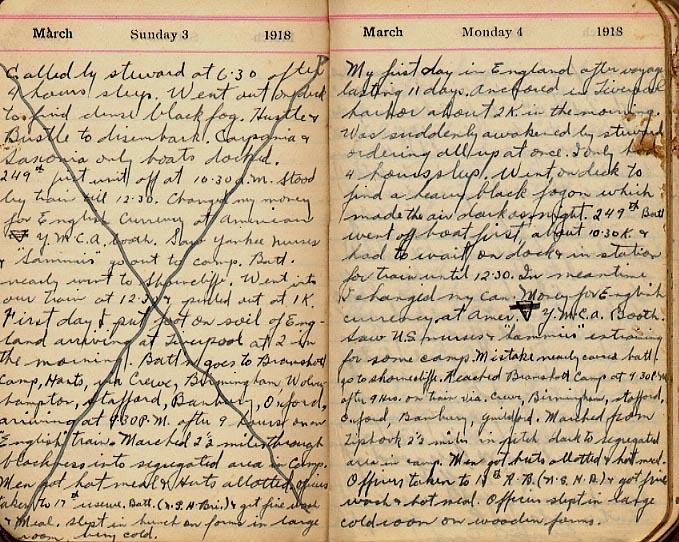 March Sunday 3 1918
Called by steward at 6.30 after
4 hours sleep. Went out on deck
to find dense black fog. Hustle &
Bustle to disembark. Carpania &
Saxonia only boats docked.
249th first unit off at 10.30 a.m. Stood
by train till 12.30. Changed my money
for English Currency at American
Y.M.C.A. booth. Saw Yankee nurses
& "Sammies" go out to camp. Batt.
nearly went to Shorncliffe. Went into
our train at 12.30 & pulled out at 1K.
First day I put foot on soil of Eng-
land arriving at Liverpool at 2 in
the morning. Battn goes to Bramshott
Camp, Hants, via Crewe, Birmingham, Wolver-
hampton, Stafford, Banbury, Oxford,
arriving at 9.30 P.M. after 9 hours on
English train. Marched 2½ miles through
blackness into segregated area in Camp.
Men got hot meal & Huts allotted, officers
taken to 17th reserve Batt. (N.S.H. Bri.) & got fine wash
& Meal. Slept in bunch on forms in large
room, very cold.
March Monday 4 1918
My first day in England after voyage
lasting 11 days. Anchored in Liverpool
harbor about 2K in the morning.
Was suddenly awakened by steward
ordering all up at once. I only had
4 hours sleep. Went on deck to
find a heavy black fog on which
made the air dark as night. 249th Batt
went off boat first, about 10.30K &
had to wait on dock & in station
for train until 12.30. In meantime
I changed my Can. Money for English
currency, at Amer. Y.M.C.A. Booth.
Saw U.S. nurses & "Sammies" entraining
for some camp. Mistake nearly caused batt.
go to Shorncliffe. Reached Bramshott Camp at 9.30 P.M
after 9 Hrs. on train via. Crewe, Birmingham, Stafford,
Oxford, Banbury, Guildford. Marched from
Liphook 2½ miles in pitch dark to segregated
area in camp. Men got huts allotted & hot meal.
Officers taken to 17th R.B. (N.S.H.B.) & got fine
wash & hot meal. Officers slept in large
cold room on wooden forms.